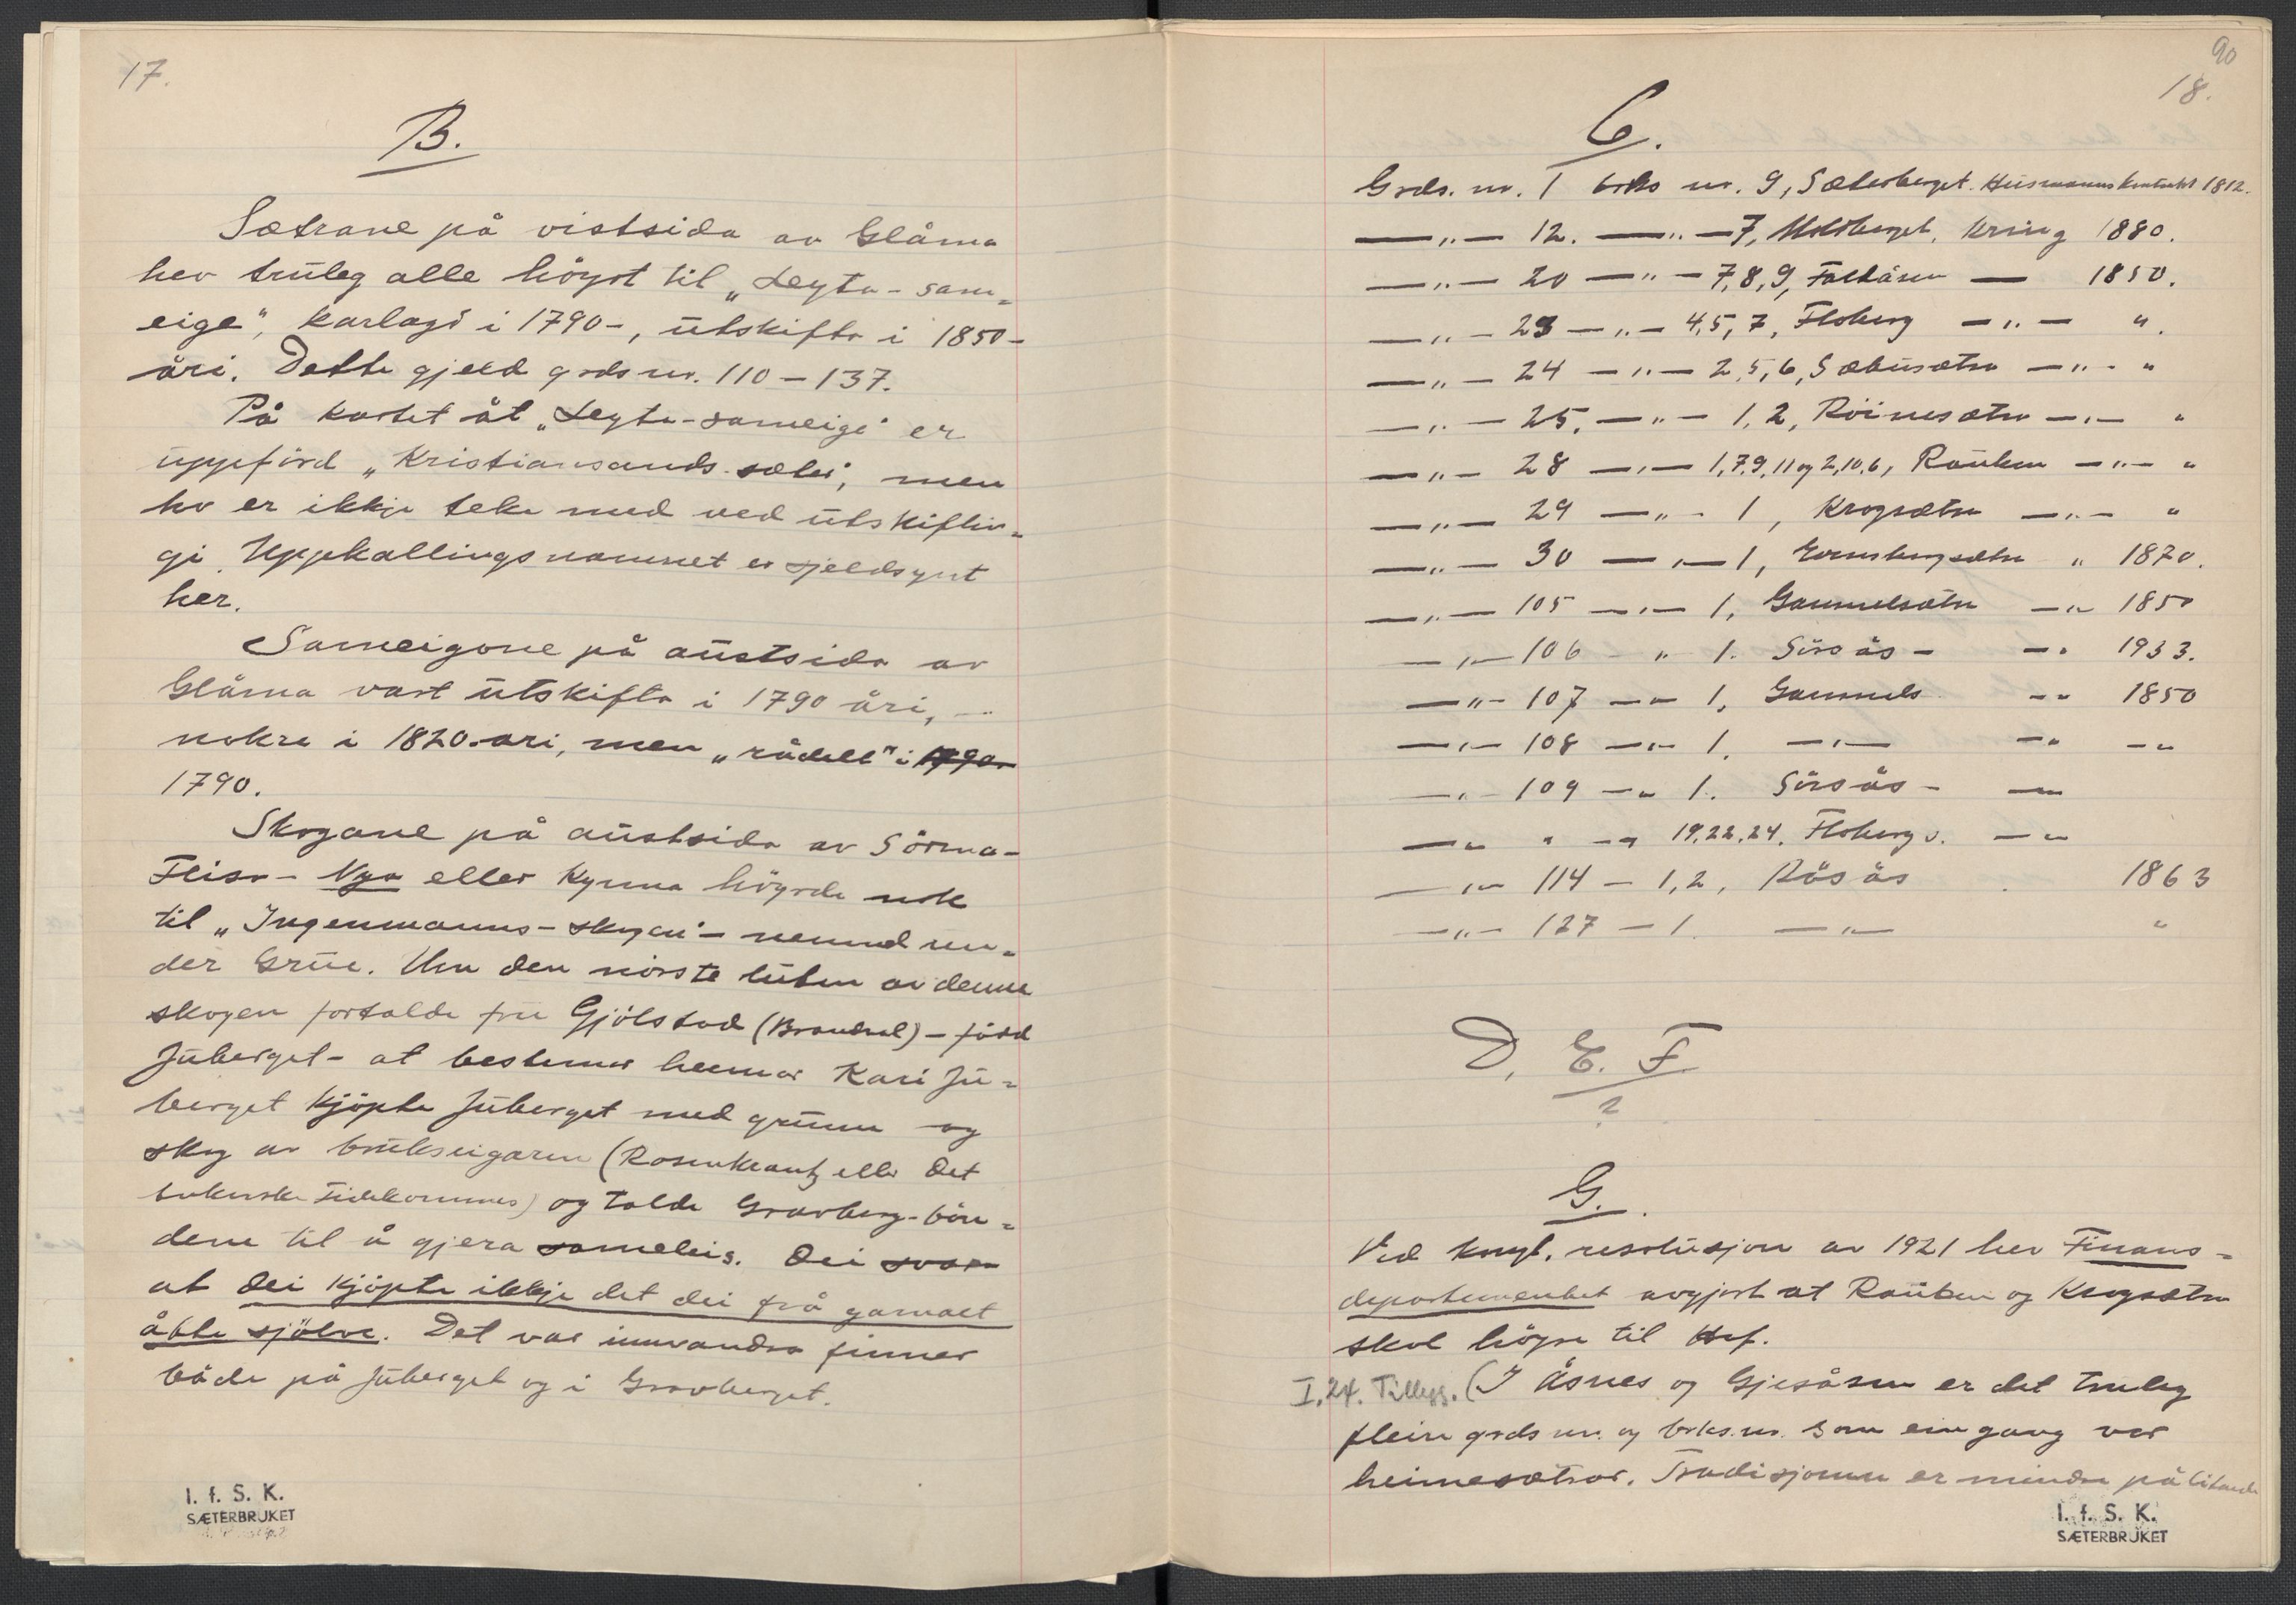 17.
B.
Sætrane på vistsida av Glåma
hev truleg alle höyrt til „Leyta-sam=
eige", karlagd i 1790-, utskifta i 1850-
åri. Dette gjeld grds nr. 110-137.
På kartet åt „Leyta-sameige" er
uppförd „Kristiansands-sæter", men
ho er ikkje teke med ved utskiftin=
gi. Uppkallingsnamnet er sjeldsynt
her.
Sameigone på austsida av
Glåma vart utskifta i 1790 åri, -
nokre i 1820-åri, men „rådele" i 1790
1790.
Skogane på austsida av Sörma-
Flisa - Nya eller Kynna höyrde nok
til „Ingenmanns-skogen" - nemnd un=
der Grue. Um den nörste luten av denne
skogen fortalde fru Gjölstad (Brandval) - född
Juberget - at bestemor hennar Kari Ju=
berget kjöpte Juberget med grunn og
skog av brukseigaren (Rosenkrantz eller Det
Ankerske Fideikommis) og talde Gravberg-bön=
dene til å gjera sameleis. Dei svara
at dei kjöpte ikkje det dei frå gamalt
åtte sjölve. Det var innvandra finner
både på Juberget og i Gravberget.
I. f. S. K.
SÆTERBRUKET
90
18.
C.
Grds. nr. 1 brks nr. 9, Sæterberget. Husmannskontrakt 1812.
—„— 12. —„— 7, Moldberget, kring 1880.
—„— 20 —„— 7,8,9, Faltåsen — 1850.
—„— 23 —„— 4,5,7, Floberg —„— „.
—„— 24 —„— 2,5,6, Sæbusætra —„— „
—„— 25. —„— 1,2, Röinesætra —„— „
—„— 28 —„— 1,7,9,11 og 2,10,6, Rauken —„— „
—„— 29 —„— 1, Krogsætra —„— „
—„— 30 —„— 1, Gornsbergsætra „ 1870.
—„— 105 —„— 1, Gammelsætra —„ 1850
—„— 106 — „ 1. Sörsås - —„ 1933.
—„— 107 —„— 1, Gammels -„ 1850
—„— 108 —„— 1. —„— —„ —„
—„— 109 —„ 1. Sörsås - —„
—„ „ —„ 19,22,24. Floberg s. —„
—„— 114 — 1,2, Råsås 1863
—„— 127 — 1. —„— „
D. E. F.
?
G.
Ved kongl. resolusjon av 1921 hev Finans=
departementet avgjort at Rauken og Krogsætra
skal höyra til Hof.
I.24. Tillegg. (I Åsnes og Gjesåsen er det truleg
fleire grds nr. og brks. nr. som ein gang var
heimesætrar. Tradisjonen er mindre pålitande
I. f. S. K.
SÆTERBRUKET